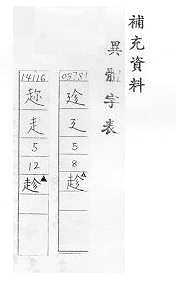 補充資料
異體字表
廴
5
8
趁
14116
趂
走
5
12
趁